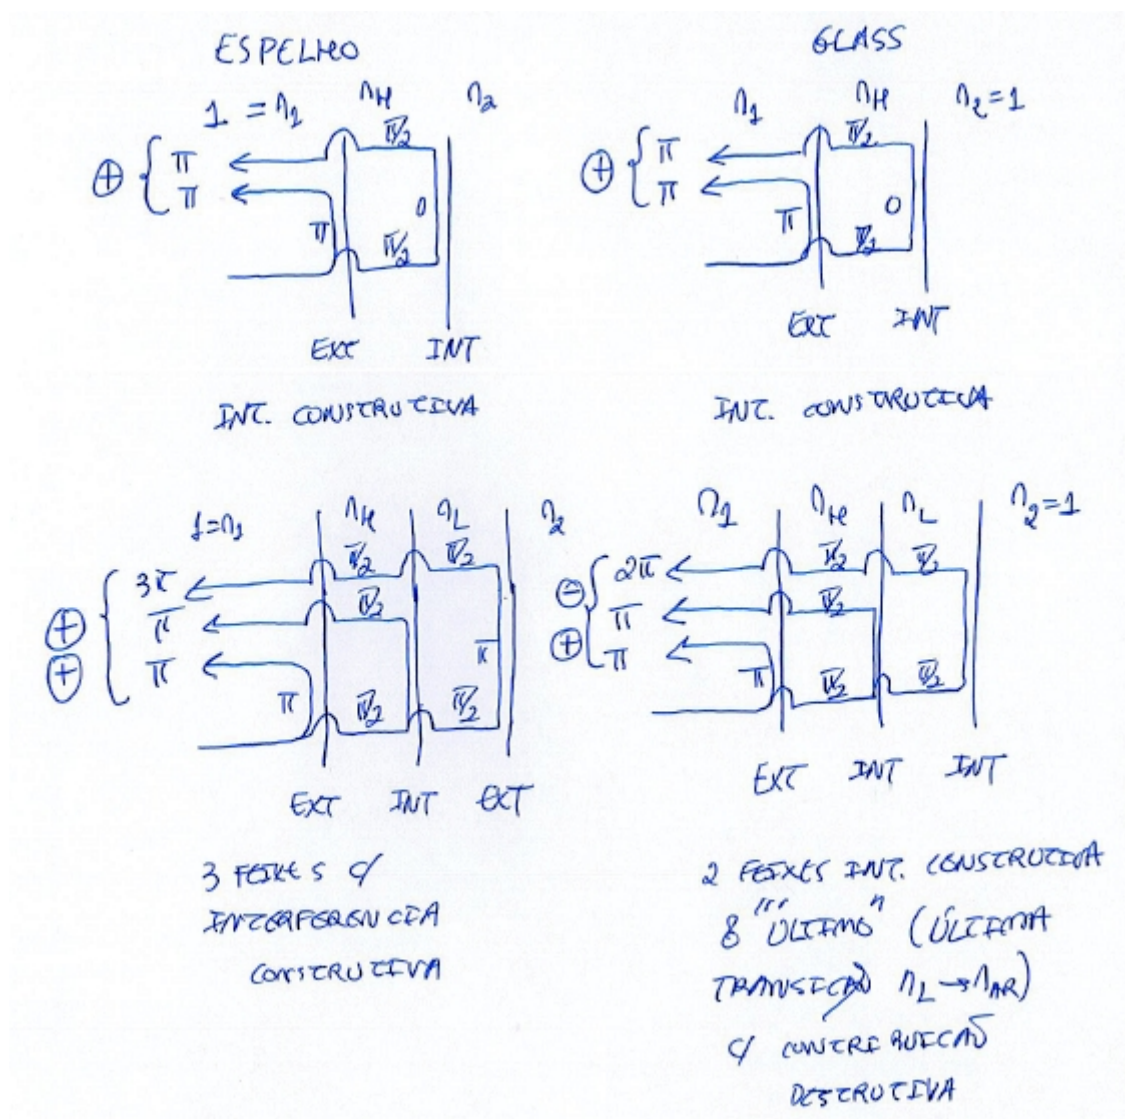 ESPELHO
1 = n1 nH n2
π/2
⊕ { π
π
0
π
π/2
EXT INT
INT. CONSTRUTIVA
GLASS
n1 nH n2=1
π/2
⊕ { π
π
0
π
π/2
EXT INT
INT. CONSTRUTIVA
1=n1 nH nL n2
π/2 π/2
3π
π/2
⊕ π
⊕ π
π
π
π/2 π/2
EXT INT EXT
3 FEIXES C/
INTERFERENCIA
CONSTRUTIVA
n1 nH nL n2=1
π/2 π/2
⊖ 2π
π/2
π
⊕ π
π
π/2 π/2
EXT INT INT
2 FEIXES INT. CONSTRUTIVA
8 "ÚLTIMO" (ÚLTIMA
TRANSIÇÃO nL→nAR)
C/ CONTRIBUIÇÃO
DESTRUTIVA